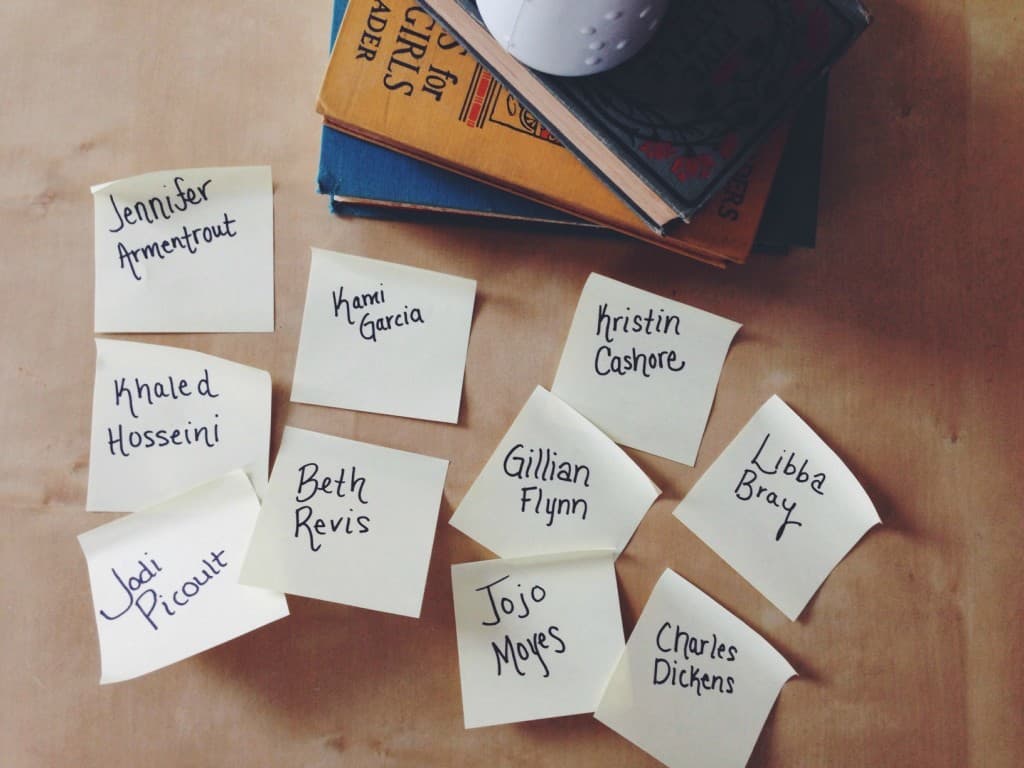 S for
GIRLS
ADER
DERS
Jennifer
Armentrout
Kami
Garcia
Kristin
Cashore
Khaled
Hosseini
Beth
Revis
Gillian
Flynn
Libba
Bray
Jodi
Picoult
Jojo
Moyes
Charles
Dickens